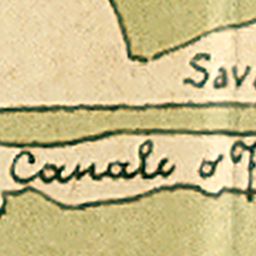 Sav
Canale o